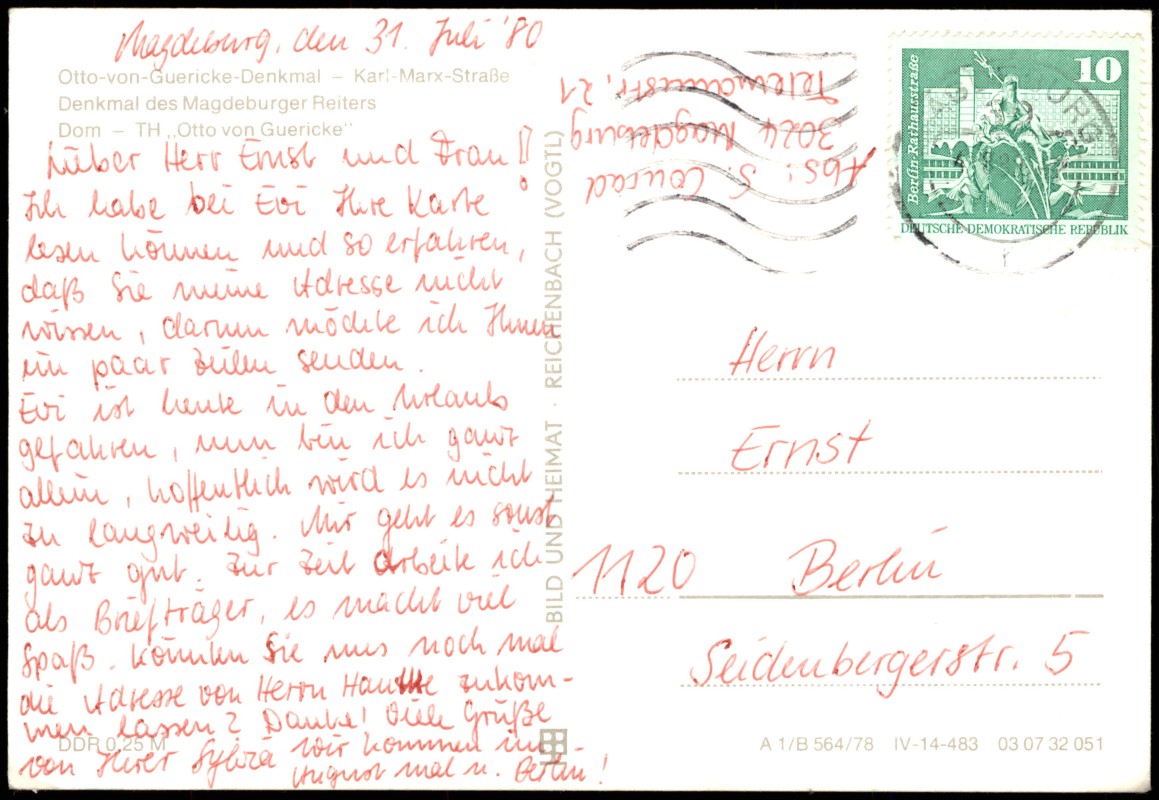 Magdeburg, den 31. Juli '80
Otto-von-Guericke-Denkmal – Karl-Marx-Straße
Denkmal des Magdeburger Reiters
Dom – TH „Otto von Guericke"
Lieber Herr Ernst und Frau!
Ich habe bei Evi Ihre Karte
lesen können und so erfahren,
daß Sie meine Adresse nicht
wissen, darum möchte ich Ihnen
ein paar Zeilen senden.
Evi ist heute in den Urlaub
gefahren, nun bin ich ganz
allein, hoffentlich wird es nicht
zu langweilig. Mir geht es sonst
ganz gut. Zur Zeit arbeite ich
als Briefträger, es macht viel
Spaß. Könnten Sie uns noch mal
die Adresse von Herrn zukom-
men lassen? Danke! Viele Grüße
von Ihrer Sylvia
Wir kommen im
August mal n. Berlin!
DDR 0,25 M
BILD UND HEIMAT · REICHENBACH (VOGTL)
Abs: S. Conrad
3024 Magdeburg
Telemannstr. 21
10
Berlin-Rathausstraße
DEUTSCHE DEMOKRATISCHE REPUBLIK
Herrn
Ernst
1120 Berlin
Seidenbergerstr. 5
A 1/B 564/78 IV-14-483 03 07 32 051